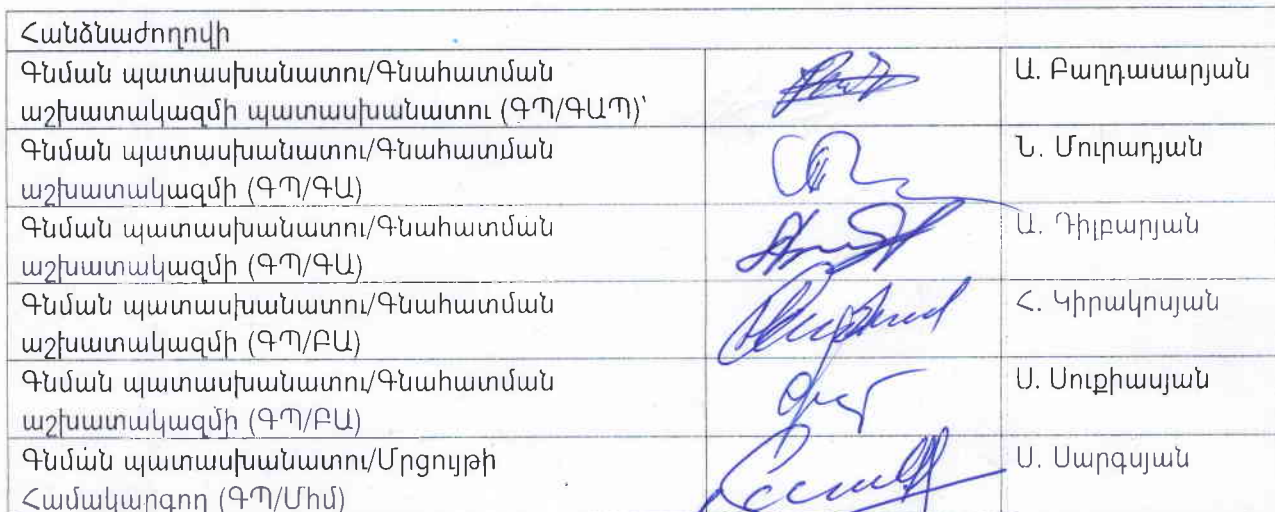 Հանձնաժողովի
Գնման պատասխանատու/Գնահատման
աշխատակազմի պատասխանատու (ԳՊ/ԳԱՊ)՝
Ա. Բաղդասարյան
Գնման պատասխանատու/Գնահատման
աշխատակազմի (ԳՊ/ԳԱ)
Ն. Մուրադյան
Գնման պատասխանատու/Գնահատման
աշխատակազմի (ԳՊ/ԳԱ)
Ա. Դիլբարյան
Գնման պատասխանատու/Գնահատման
աշխատակազմի (ԳՊ/ԲԱ)
Հ. Կիրակոսյան
Գնման պատասխանատու/Գնահատման
աշխատակազմի (ԳՊ/ԲԱ)
Ս. Սուքիասյան
Գնման պատասխանատու/Մրցույթի
Համակարգող (ԳՊ/Միմ)
Ս. Սարգսյան